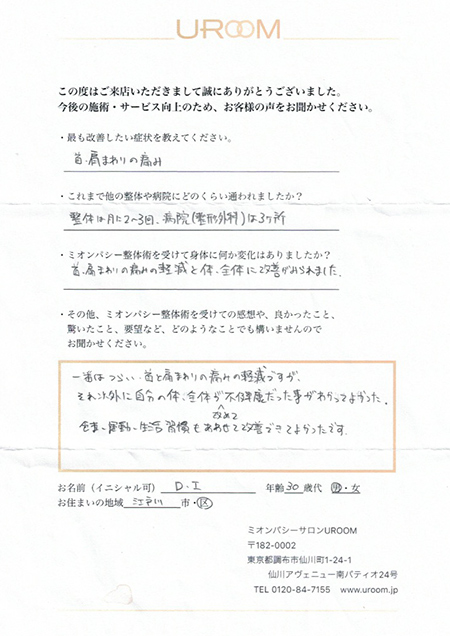 UROOM
この度はご来店いただきまして誠にありがとうございました。
今後の施術・サービス向上のため、お客様の声をお聞かせください。
・最も改善したい症状を教えてください。
首・肩まわりの痛み
・これまで他の整体や病院にどのくらい通われましたか？
整体は月に2〜3回、病院(整形外科)は3ヶ所
・ミオンパシー整体術を受けて身体に何か変化はありましたか？
首、肩まわりの痛みの軽減と体、全体に改善がみられました。
・その他、ミオンパシー整体術を受けての感想や、良かったこと、
驚いたこと、要望など、どのようなことでも構いませんので
お聞かせください。
一番はつらい首と肩まわりの痛みの軽減ですが、
それ以外に自分の体、全体が不健康だった事が改めてわかってよかった。
食事・運動・生活習慣もあわせて改善できてよかったです。
お名前（イニシャル可） D・I 年齢 30 歳代 男・女
お住まいの地域 江戸川 市・区
ミオンパシーサロンUROOM
〒182-0002
東京都調布市仙川町1-24-1
仙川アヴェニュー南パティオ24号
TEL 0120-84-7155 www.uroom.jp